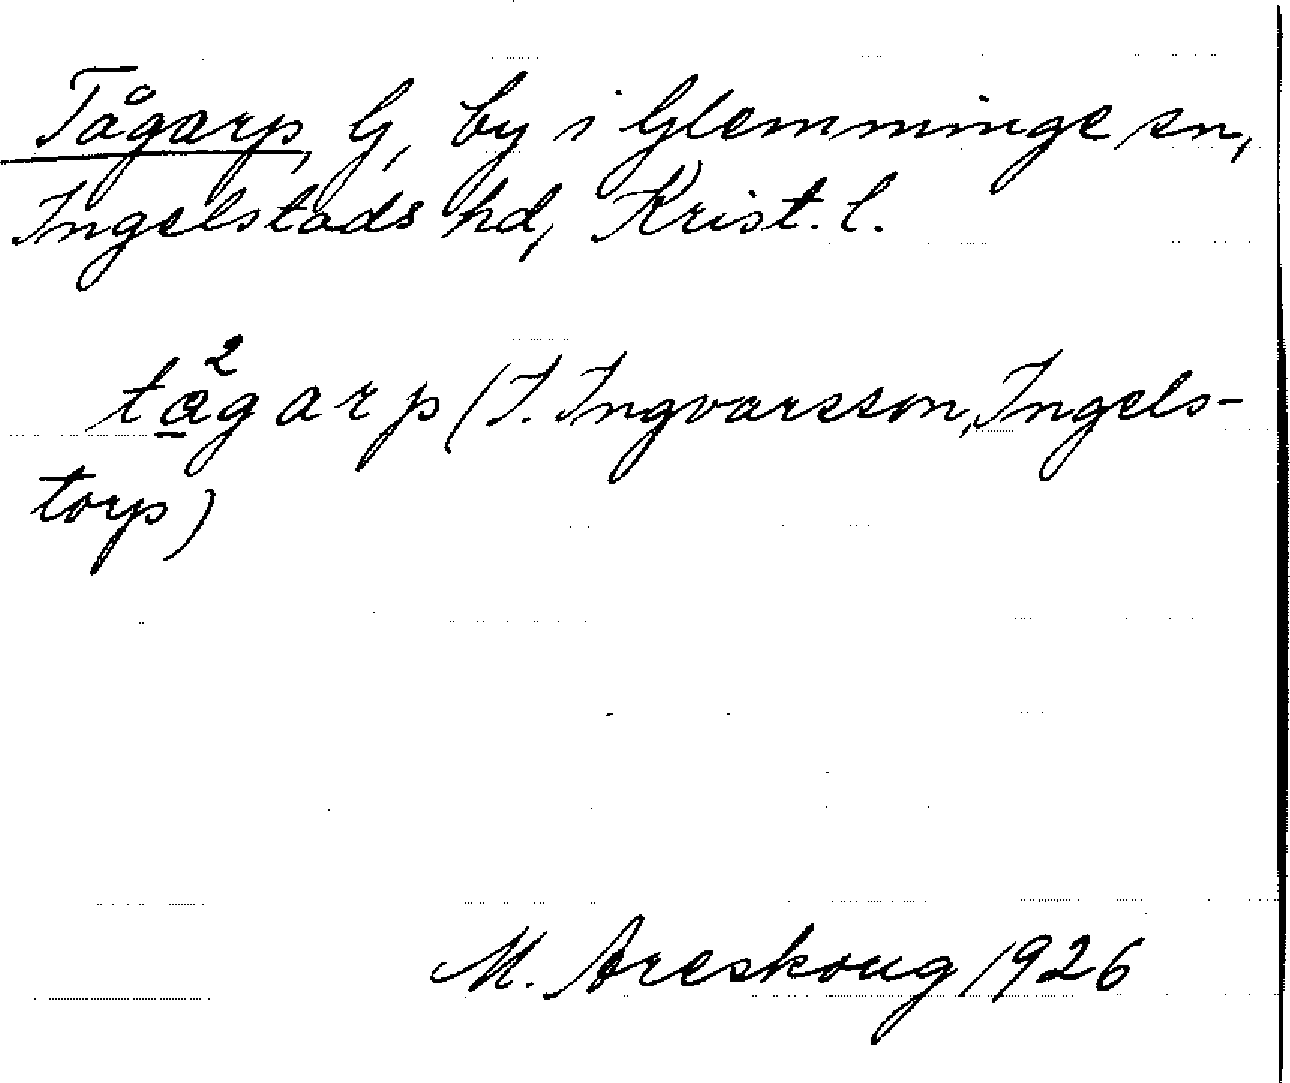 Tågarp, G, by i Glemminge sn,
Ingelstads hd, Krist. l.
ta²garp (I. Ingvarsson, Ingels-
torp)
M. Areskoug 1926